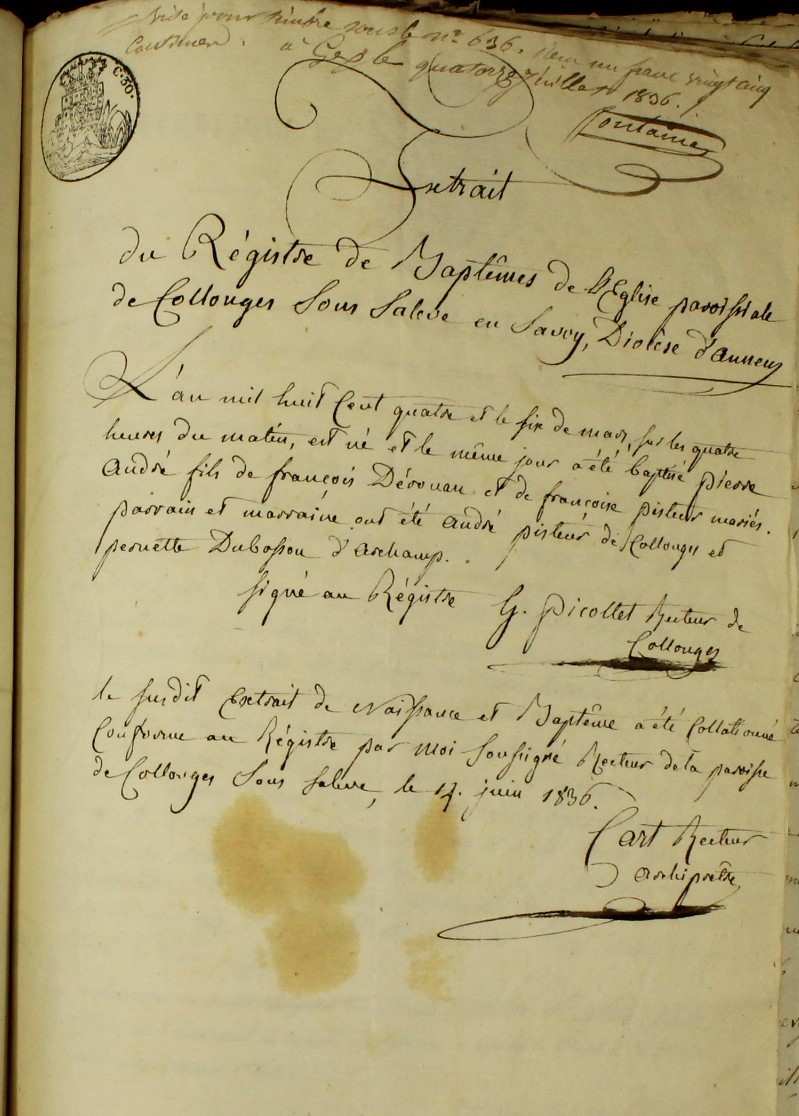 Visé pour timbre sous le n° 636. Reçu un franc vingt cinq
Centimes. à Gex le quatorze juillet
1836.
Fontaine
C. 30.
Extrait
du Régistre de Baptêmes de L'Eglise paroissiale
de Collonges Sous Saleve en Savoy, Diocèse d'annecy
L'an mil huit Cent quatre et le six de mars, sur les quatre
heures du matin, est né et le même jour a été baptisé pierre
André fils de françois Dérouan et de françoise pisteur mariés.
parrain et marraine ont été André pisteur de Collonges et
pernette Dubosson d'archamp.
signé au Régistre G. Picollet Recteur de
Collonges
le susdit Extrait de Naissance et Baptême a été Collationné
Conforme au Régistre par moi Soussigné Recteur de la paroisse
de Collonges Sous Saleve, le 14. juin 1836.
Cart Recteur
archiprêtre